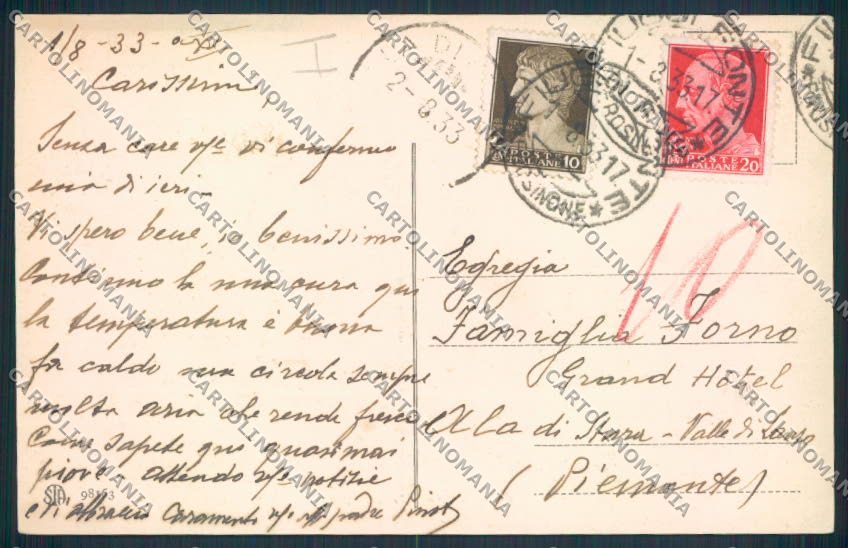 1/8-33-XI
Carissimi
Senza care vs/ vi confermo
mia di ieri.
Vi spero bene, io benissimo.
Continuo la mia cura qui
la temperatura è buona
fa caldo ma circola sempre
molta aria che rende fresco
Come sapete qui quasi mai
piove attendo vs/ notizie
e vi abbraccio caramente vs/ padre
STA 98163
I
2-8.33
POSTE ITALIANE 10
CENT
POSTE ITALIANE 20
CENT
1-8.33.17
FROSINONE
10
Egregia
Famiglia Forno
Grand Hôtel
Ala di Stura - Valle di Lanzo
(Piemonte)
CARTOLINOMANIA